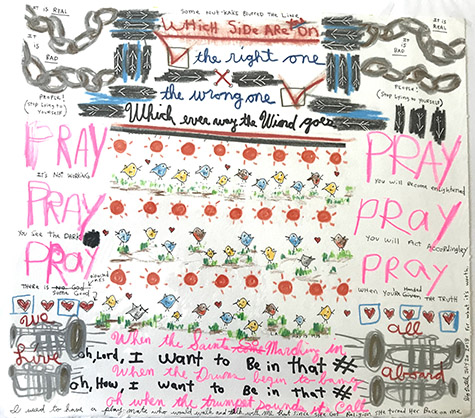 Some out-takes Blurred The Line
Which Side Are On
the right one
the wrong one
Which ever way the Wind goes
It is REAL
IT IS BAD
PEOPLE!
(Stop lying to yourself)
It is REAL
IT IS BAD
PEOPLE!
(Stop lying to yourself)
PRAY
It's not working
PRAY
You see the DARK
PRAY
There is no God
Some Good
PRAY
You will become enlightened
PRAY
You will act Accordingly
PRAY
When You're Handed the TRUTH
we
live
all
aboard
When the Saints Marching in
oh, Lord, I want to Be in that #
When the Drums begin to bang
oh, How, I want to Be in that #
oh when the trumpet sounds its Call
I used to have a play mate who would walk and talk with me
She turned Her Back on